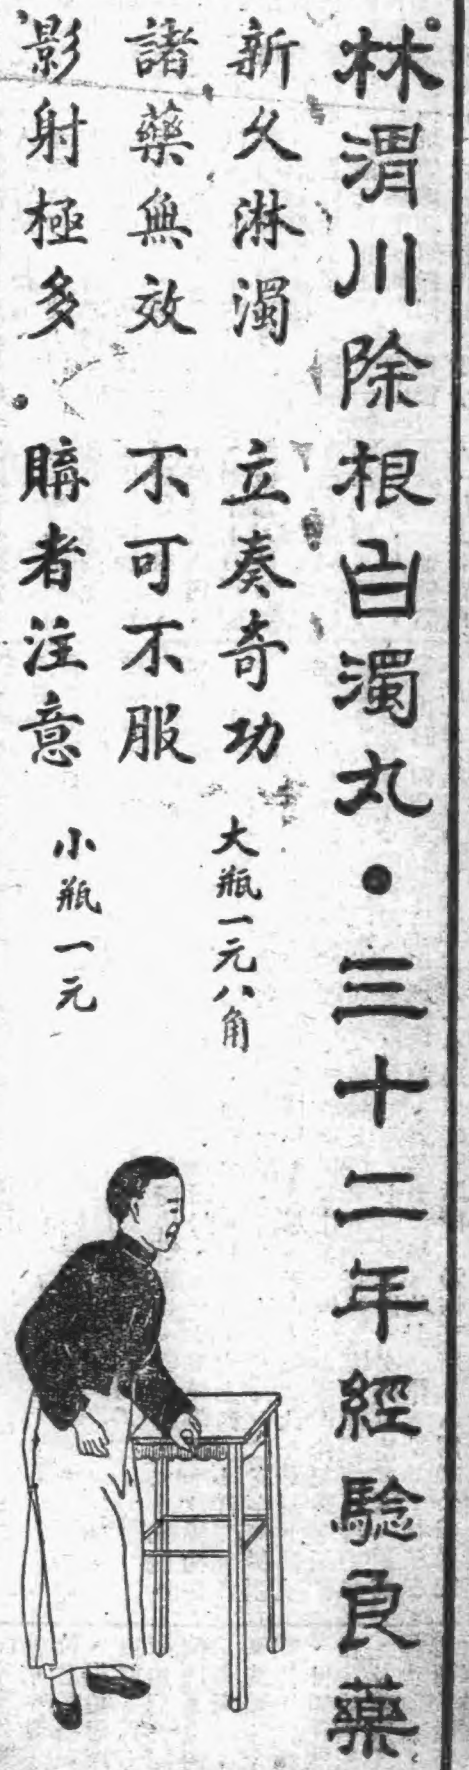 林渭川除根白濁丸•三十二年經驗良藥
新久淋濁 立奏奇功
大瓶一元八角
諸藥無效 不可不服
影射極多 購者注意
小瓶一元